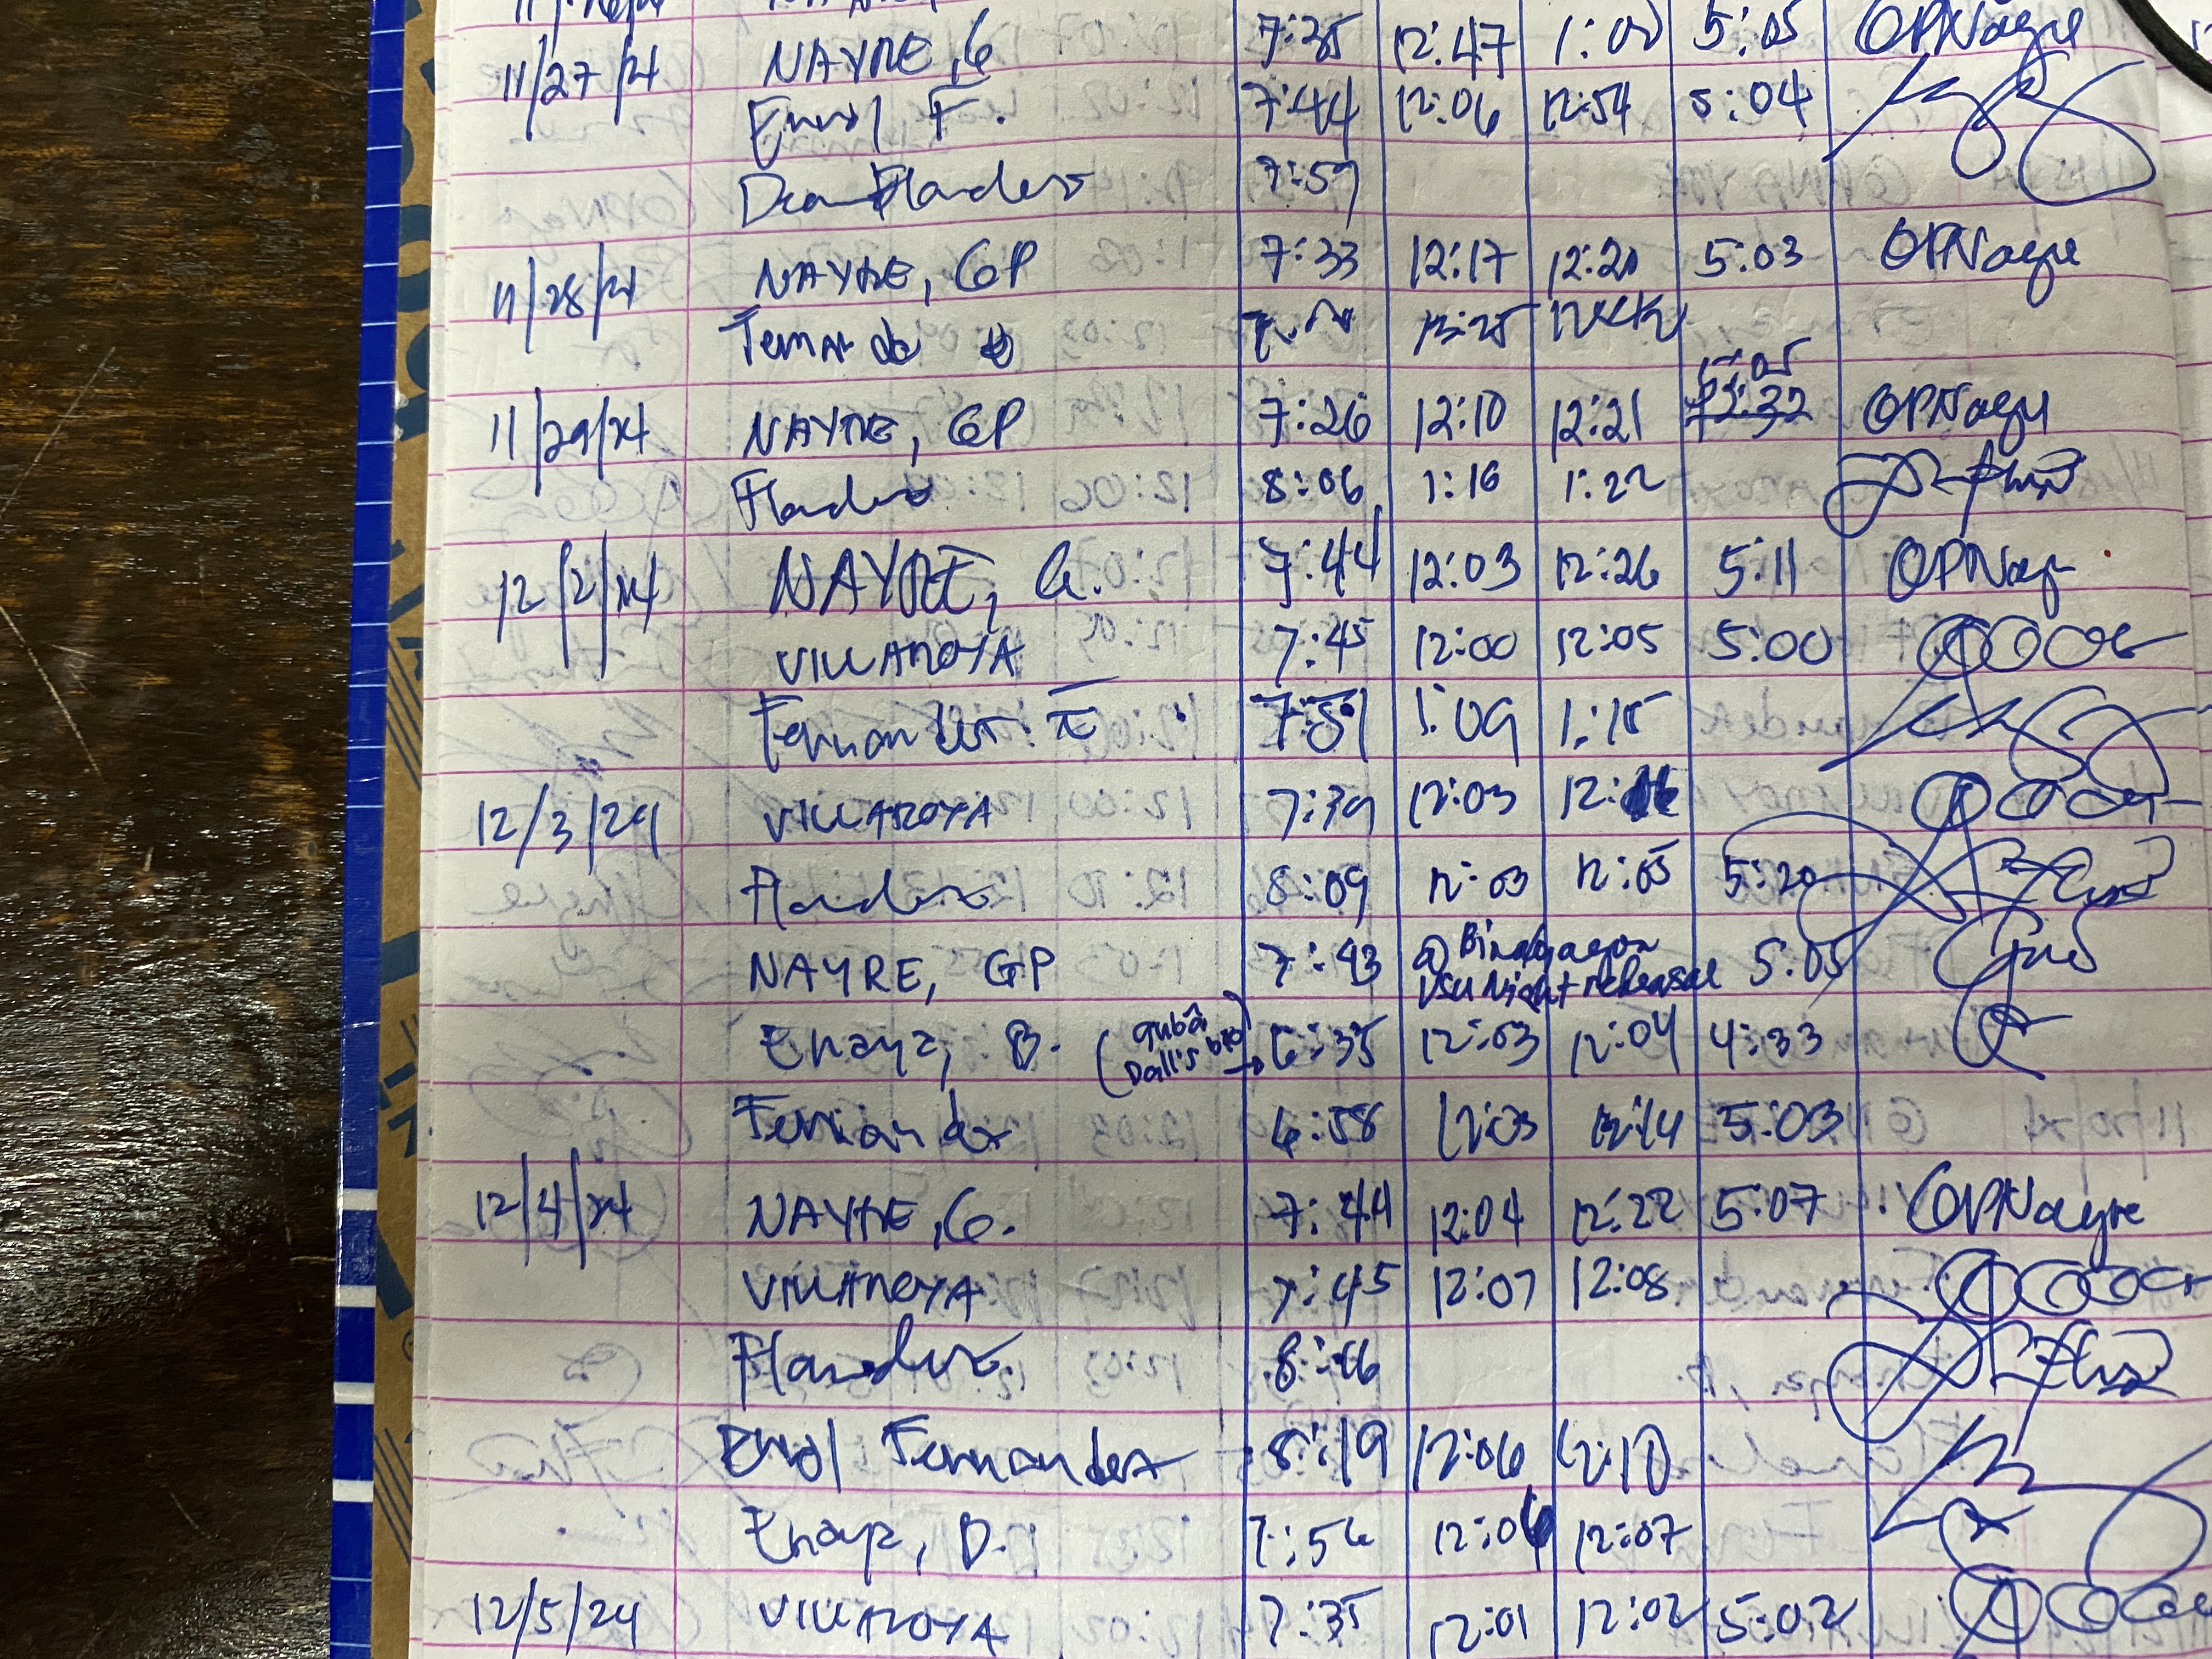 11/27/24 NAYRE, G 7:35 12:47 1:00 5:05 GPNayre
Errol F. 7:44 12:06 12:54 5:04
Dean Flandez 7:59
11/28/24 NAYRE, GP 7:33 12:17 12:20 5:03 GPNayre
Fernandez
5:05
11/29/24 NAYRE, GP 7:26 12:10 12:21 12:32 GPNayre
Flandez 8:06 1:16 1:22
12/2/24 NAYRE, G. 7:44 12:03 12:26 5:11 GPNayre
VILLAROYA 7:45 12:00 12:05 5:00
Fernandez E 7:51 1:09 1:15
12/3/24 VILLAROYA 7:39 12:03 12:
Flandez 8:09 12:03 12:05 5:20
NAYRE, GP 7:43 @ Binabayon VSU Night rehearsal 5:05
Enaya, B. (gubâ Dali's bio) → 6:35 12:03 12:04 4:33
Fernandez 6:58 12:03 12:14 5:03
12/4/24 NAYRE, G. 7:44 12:04 12:22 5:07 GPNayre
VILLAROYA 7:45 12:07 12:08
Flandez 8:16
Errol Fernandez 8:19 12:06 12:10
Enaya, B. 7:56 12:06 12:07
12/5/24 VILLAROYA 7:35 12:01 12:02 5:02